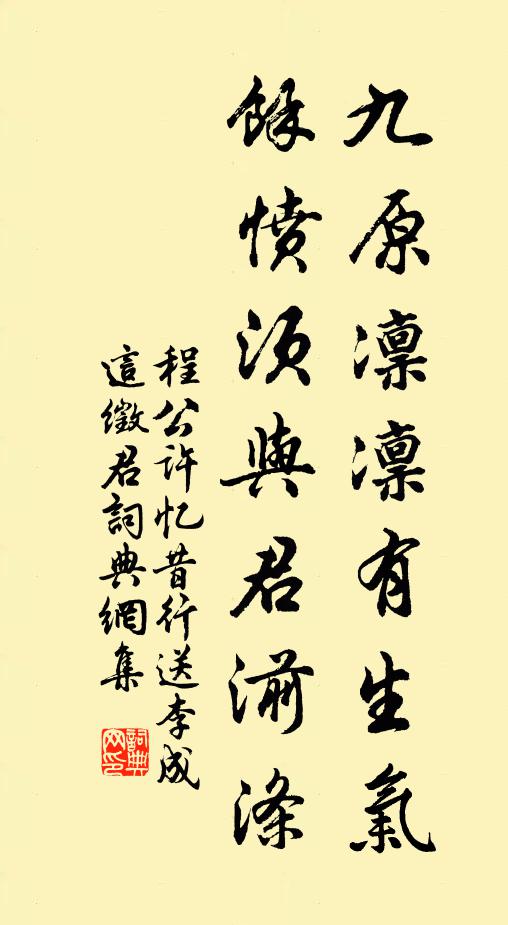 九原凛凛有生氣
餘憤須與君湔滌
程公許忆昔行送李成
這徵君詞典網集
詞典
网印